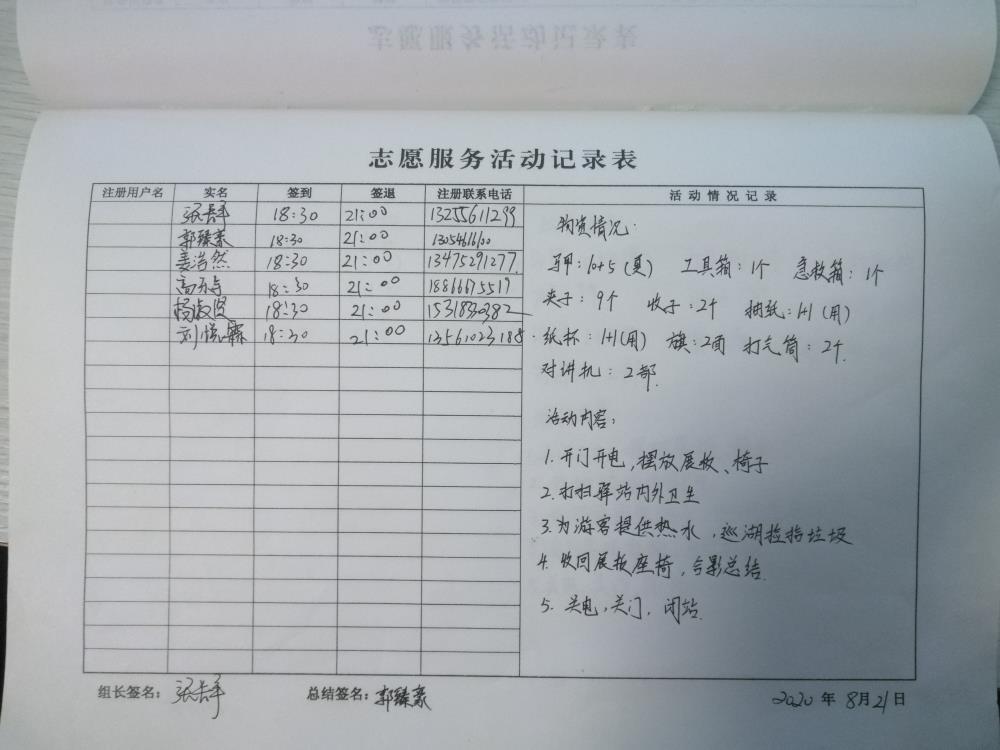 志愿服务活动记录表
注册用户名 实名 签到 签退 注册联系电话 活动情况记录
18:30 21:00 13255611299
郭臻豪 18:30 21:00 1305461600
姜浩然 18:30 21:00 13475291277
18:30 21:00 18866675517
杨淑贤 18:30 21:00
刘悦霖 18:30 21:00 13561023188
物资情况:
马甲:10+5(夏) 工具箱:1个 急救箱:1个
夹子:9个 收子:2个 抽纸:1+1(用)
纸杯:1+1(用) 旗:2面 打气筒:2个
对讲机:2部
活动内容:
1.开门开电,摆放展板、椅子
2.打扫驿站内外卫生
3.为游客提供热水,巡湖捡拾垃圾
4.收回展板座椅,合影总结.
5.关电,关门,闭站.
组长签名:
总结签名:郭臻豪
2020年8月21日